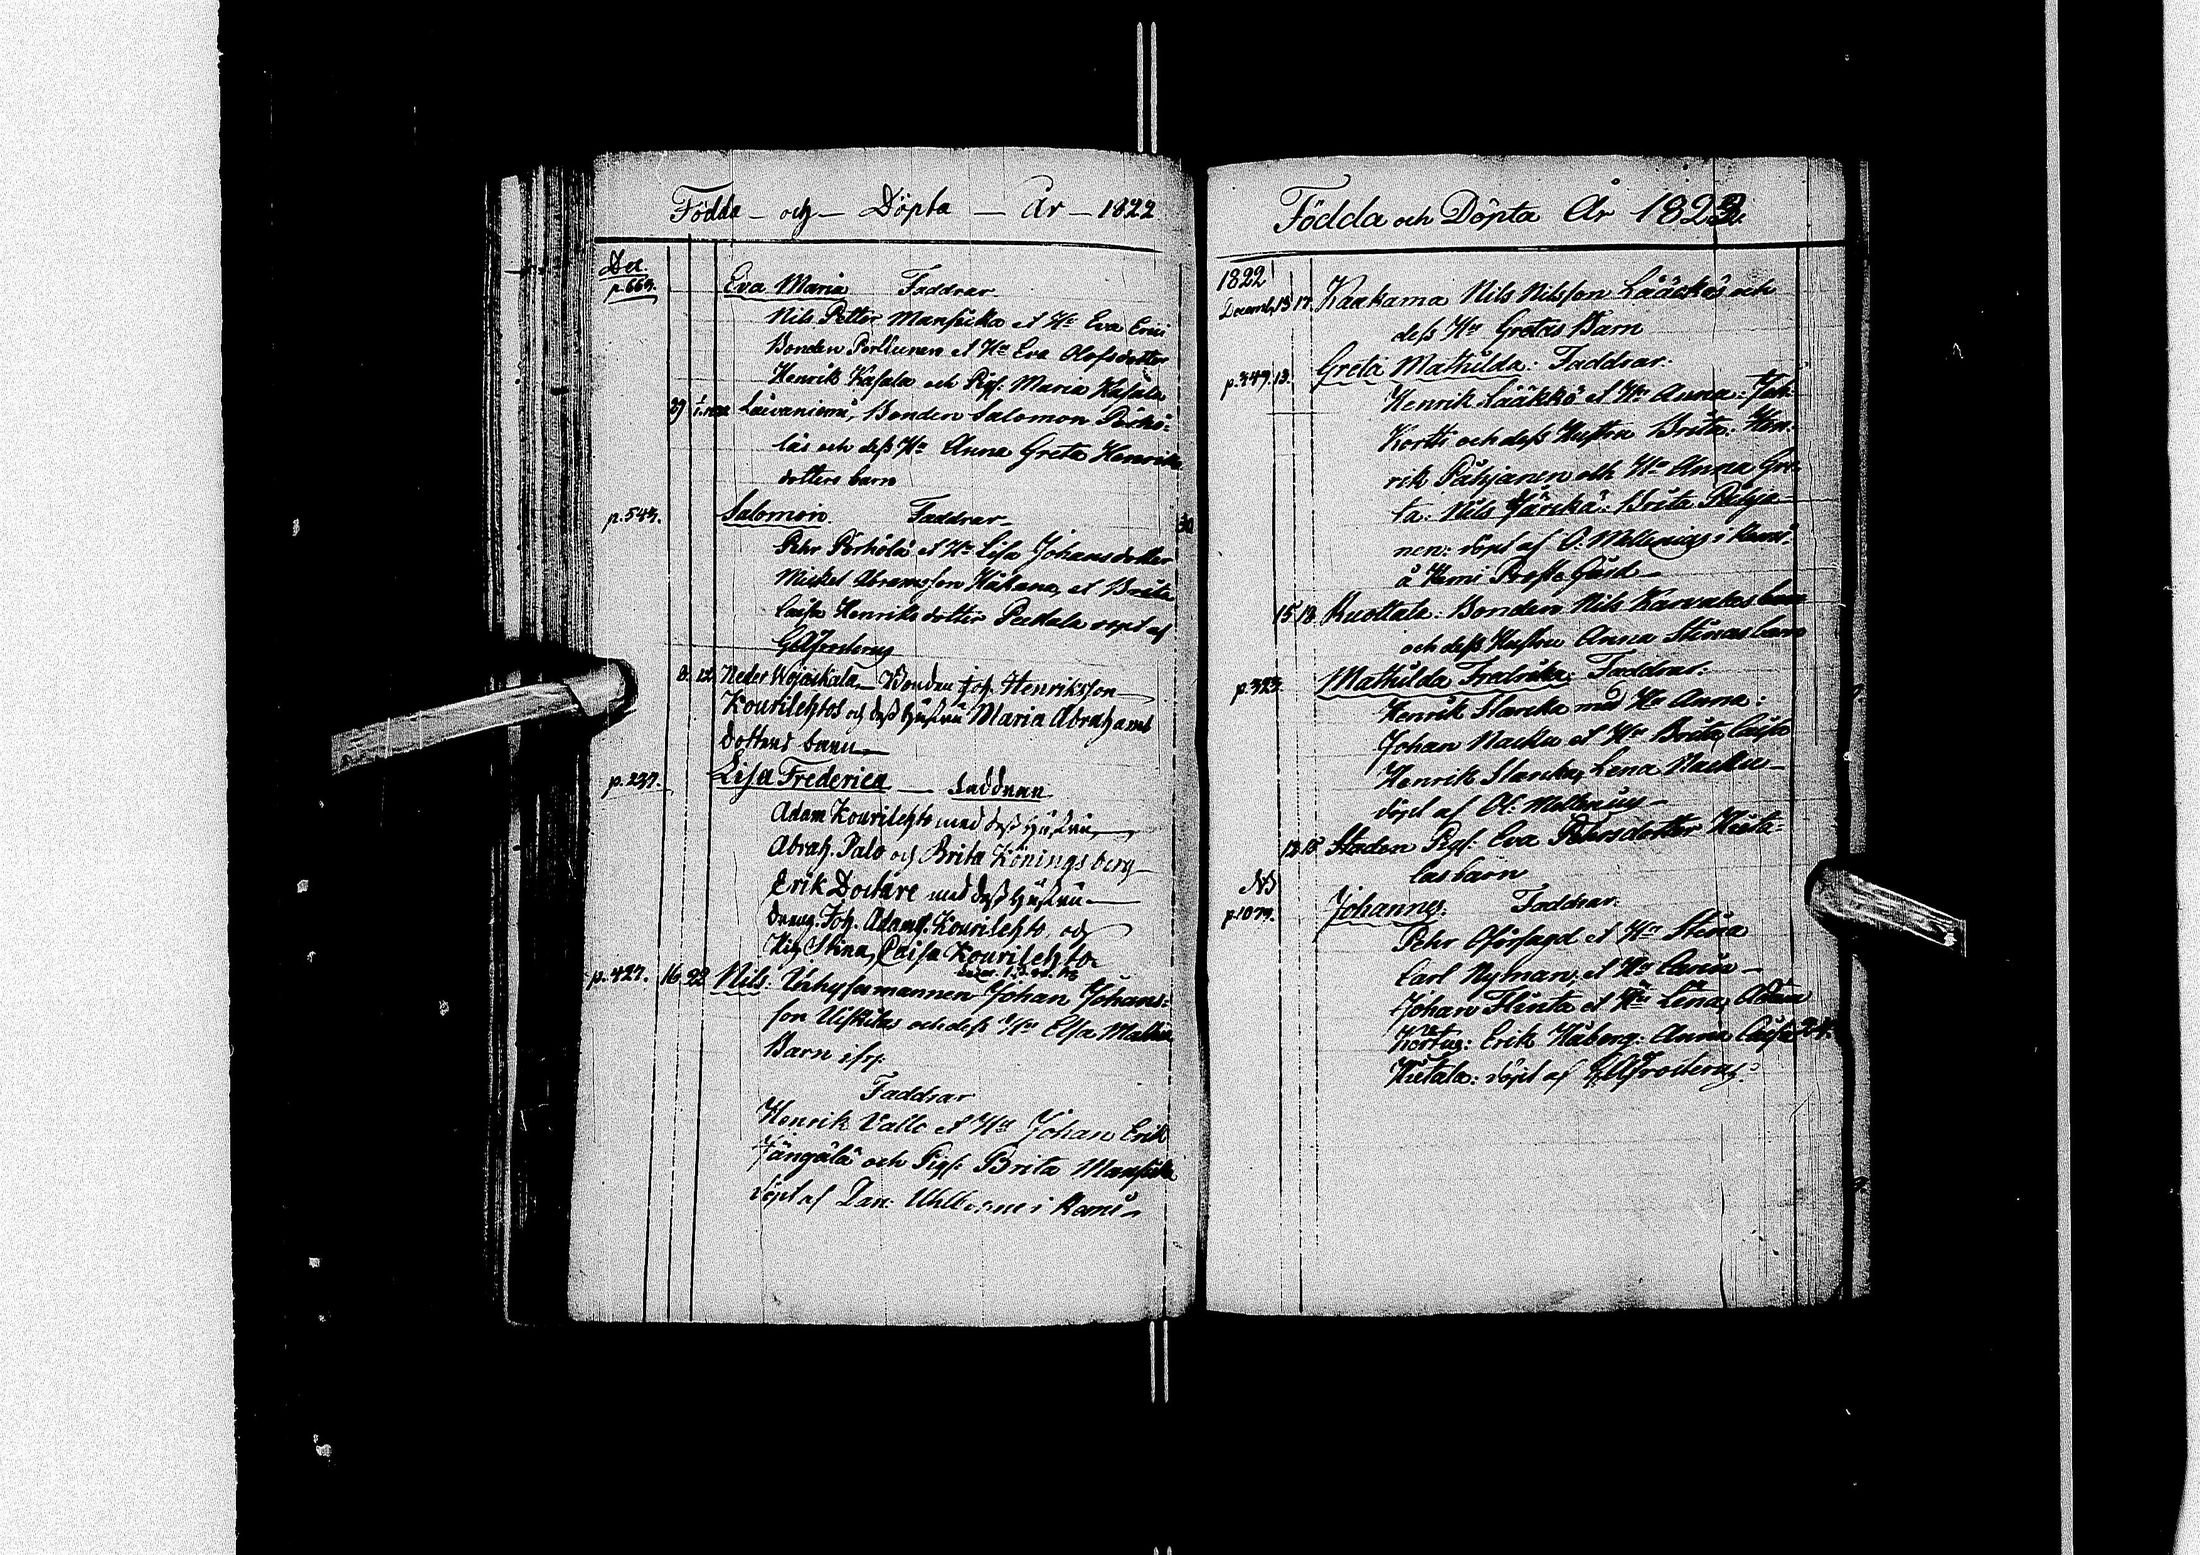 Födda – och – Döpta – År – 1822
Dec.
p. 663. Eva Maria Faddrar
Nils Petter Mansikka et Hu Eva Erici
Bonden Perttunen et Hu Eva Olofsdotter
Henrik Kasala och Pig. Maria Kasala
Laivaniemi, Bonden Salomon
och dess Hu Anna Greta Henriks
dotters barn
p. 543. Salomon Faddrar
Pehr Perhola et Hu Lisa Johansdotter
Mickel Abramsson et Brita
Caisa Henriksdotter Peckala döpt af
8. 12. Neder Wojackala – Bonden Joh. Henriksson
Kourilehtos och dess Hustru Maria Abrahams
dotters barn
p. 237. Lisa Frederica – Faddrar
Adam Kourilehto med dess Hustru
Abrah. Palo och Brita Köningsberg
Erik Doctare med dess Hustru
Dräng. Joh. Adamss. Kourilehto, och
Stina Caisa Kourilehto
p. 427. 16 22 Nils: Inhysesmannen Johan Johans-
son och dess Hu Elsa
Barn
Faddrar
Henrik Vallo et Hu Johan Erik
Jängälä och Pigs. Brita Mansikka
döpt af Dan: i Kemi
Födda och Döpta År 1823.
1822
Decemb. 13 17. Kaakama Nils Nilsson Lääkkös och
dess Hu Gretas Barn
p. 349. 13. Greta Mathilda: Faddrar:
Henrik Lääkkö et Hu Anna: Joh:
Kortti och dess Hustru Brita: Hen-
rik Pähjanen och Hu Anna Gre-
ta: Nils Järickä: Brita Pähja-
nen: döpt af O: Mellenius i Kemi
å Kemi Preste Gård
15 18. Ruottala: Bonden Nils Karvalas
och dess Hustru Anna Stinas barn
p. 323. Mathilda Fredrika: Faddrar:
Henrik Slarcka med Hu Anna:
Johan Nacku et Hu Brita Caisa
Henrik Slarcka, Lena Nacku
döpt af Ol: Mellenius
12 15 Staden Pigs. Eva Pehrsdotter Hieta-
las barn
NB
p. 1077. Johannes. Faddrar.
Pehr Oförsagd et Hu Stina
Carl Nyman, et Hu Carin
Johan Flinta et Hu Lena, Adam
Kortus: Erik Häberg: Anna Caisa
Hietala: döpt af